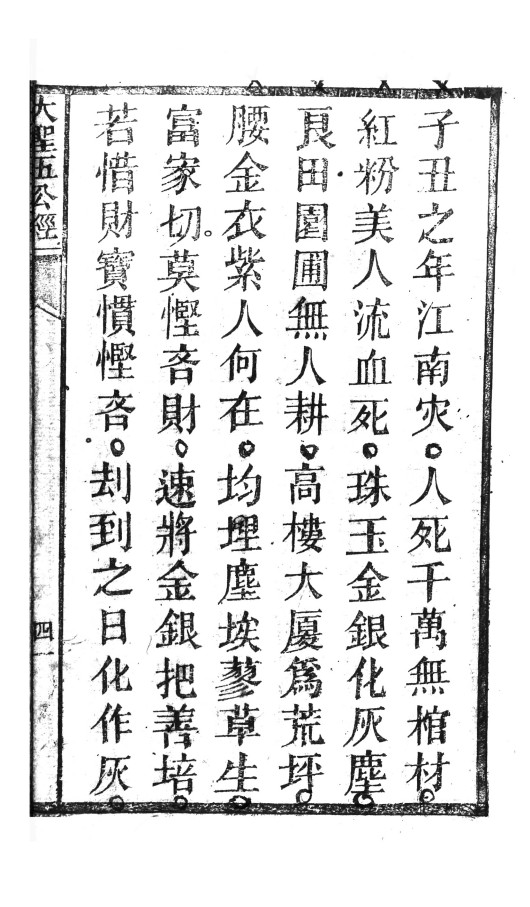 子丑之年江南灾。人死千萬無棺材。
紅粉美人流血死。珠玉金銀化灰塵。
良田園圃無人耕。高樓大厦爲荒坪。
腰金衣紫人何在。均埋塵埃蓼草生。
富家切。莫慳吝財。速將金銀把善培。
若惜財寳慣慳吝。刦到之日化作灰。
大聖五公經
四